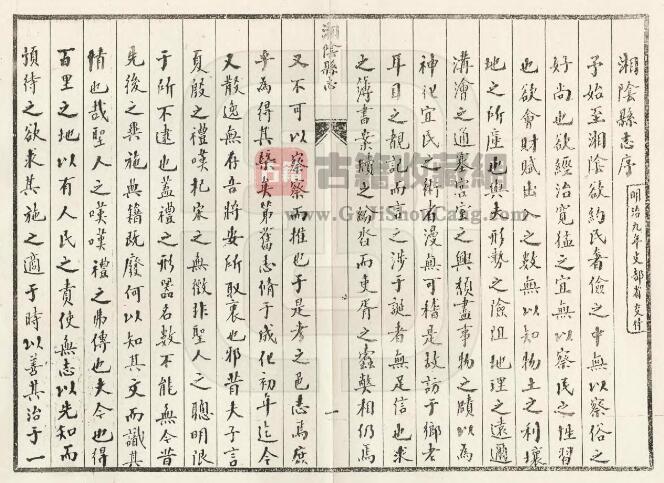 湘陰縣志序
明治九年文部省交付
予始至湘陰欲約民奢儉之中無以察俗之
好尚也欲經治寬猛之宜無以察民之性習
也欲會財賦出入之數無以知物土之利壤
地之所產也與夫形勢之險阻地理之遠邇
溝澮之通塞宗主之興頹盡事物之賾以為
神化宜民之術者漫無可稽是故訪于鄉者
耳目之覩記而言之涉于誕者無足信也求
之簿書案牘之紛沓而吏胥之蠹弊相仍焉
湘陰縣志
一
又不可以察察而推也于是考之邑志焉庶
乎為得其槩矣第舊志脩于成化初年迄今
又散逸無存吾將安所取衷也邪昔夫子言
夏殷之禮嘆杞宋之無徵非聖人之聰明限
于所不逮也蓋禮之形器名數不能無今昔
先後之異施典籍既廢何以知其文而識其
情也哉聖人之嘆嘆禮之弗傳也夫令也得
百里之地以有人民之責使無志以先知而
預待之欲求其施之適于時以善其治于一
古籍收書網
www.GujiShouCang.com